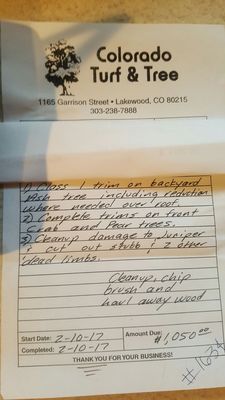 Colorado
Turf & Tree
1165 Garrison Street • Lakewood, CO 80215
303-238-7888
1) Class 1 trim on backyard
Ash tree including reduction
where needed over roof.
2) Complete trims on front
Crab and Pear trees.
3) Cleanup damage to Juniper
& cut out stubb & 2 other
dead limbs.
Cleanup, chip
brush and
haul away wood
Start Date: 2-10-17
Amount Due: $1,050.00
Completed: 2-10-17
THANK YOU FOR YOUR BUSINESS!